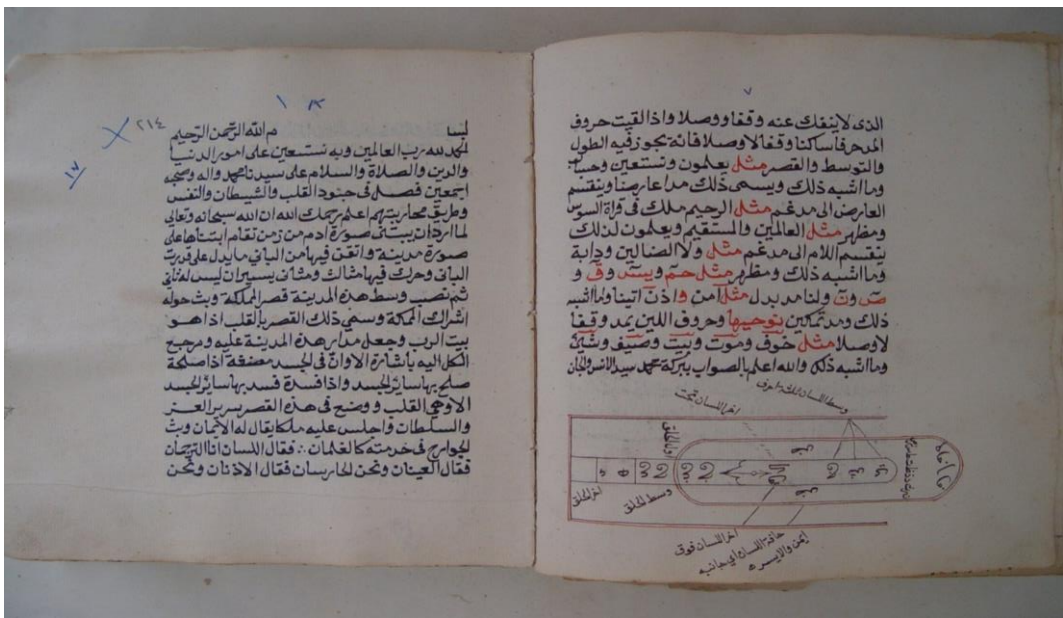 ٧
الذى لاينفك عنه وقفا ووصلا واذا لقيت حروف
المد حرفا ساكنا وقفا لا وصلا فانه يجوز فيه الطول
والتوسط والقصر مثل يعلمون ونستعين وحساب
وما اشبه ذلك ويسمى ذلك مدا عارضا وينقسم
العارض الى مدغم مثل الرحيم ملك فى قراة السوس
ومظهر مثل العالمين والمستقيم ويعلمون لذلك
ينقسم اللام الى مدغم مثل ولا الضالين ودابة
وما اشبه ذلك ومظهر مثل حم ويس وق و
ص ون ولنا مد بدل مثل امن واذن اتينا وما اشبه
ذلك ومد تمكين نوحيها وحروف اللين يمد وقفا
لا وصلا مثل خوف وموت وبيت وصيف وشئ
وما اشبه ذلك والله اعلم بالصواب ببركة محمد سيد الانس والجان
وسط اللسان
اخر اللسان تحت
وسط الحلق
اخر الحلق
اخر اللسان فوق
حافة اللسان اى جانبه
ايمن والايسر
٢١٤
١٧
بسم الله الرحمن الرحيم
الحمد لله رب العالمين وبه نستعين على امور الدنيا
والدين والصلاة والسلام على سيدنا محمد واله وصحبه
اجمعين فصل فى جنود القلب والشيطان والنفس
وطريق محاربتهم اعلم رحمك الله ان الله سبحانه وتعالى
لما اراد ان يبتنى صورة ادم من زمن تقام ابتناها على
صورة مدينة واتقن فيها من البانى ما يدل على قدرت
البانى وحرك فيها مثالث ومثانى يسيران ليس له ثانى
ثم نصب وسط هذه المدينة قصر المملكة وبث حوله
اشراك الممكة وسمى ذلك القصر بالقلب اذا هو
بيت الرب وجعل مدار هذه المدينة عليه ومرجع
الكل اليه باشارة الاوان فى الجسد مضغة اذا صلحة
صلح بها سائر الجسد واذا فسدة فسد بها سائر الجسد
الا وهى القلب ووضع فى هذه القصر سرير العز
والسلطان واجلس عليه ملكا يقال له الايمان وبث
الجوارح فى خدمته كالغلمان فقال اللسان انا الترجمان
فقال العينان ونحن الحارسان فقال الاذنان ونحن